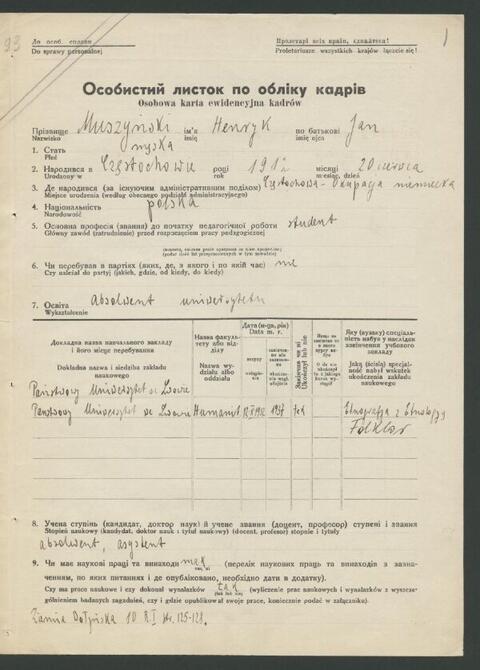 93
До особ. справи
Do sprawy personalnej
Пролетарі всіх країн, єднайтеся!
Proletariusze wszystkich krajów łączcie się!
1
Особистий листок по обліку кадрів
Osobowa karta ewidencyjna kadrów
Прізвище Muszyński ім'я Henryk по батькові Jan
Nazwisko imię imię ojca
1. Стать męska
Płeć
2. Народився в Częstochowa році 1912 місяці 20 czerwca
Urodzony w roku miesiąc, dzień
3. Де народився (за існуючим адміністративним поділом) Częstochowa - Okupacja niemiecka
Miejsce urodzenia (według obecnego podziału administracyjnego)
4. Національність polska
Narodowość
5. Основна професія (звання) до початку педагогічної роботи student
Główny zawód (zatrudnienie) przed rozpoczęciem pracy pedagogicznej
6. Чи перебував в партіях (яких, де, з якого і по який час) nie
Czy należał do partyj (jakich, gdzie, od kiedy, do kiedy)
7. Освіта Absolwent uniwersytetu
Wykształcenie
Докладна назва навчального закладу і його місце перебування
Dokładna nazwa i siedziba zakładu naukowego
Назва факультету або відділу
Nazwa wydziału albo oddziału
Дата (м-ця, рік)
Data m. r.
вступу
Закінчив чи ні
Ukończył lub nie
Яку (вузьку) спеціальність набув у наслідок закінчення учбового закладу
Jaką (ścisłą) specjalność nabył wskutek ukończenia zakładu naukowego
Państwowy Uniwersytet we Lwowie
Państwowy Uniwersytet we Lwowie Humanist. 1937 tak Etnografja z Etnologją
Folklor
8. Учена ступінь (кандидат, доктор наук) й учене звання (доцент, професор) ступені і звання
Stopień naukowy (kandydat, doktor nauk i tytuł naukowy) (docent, profesor) stopnie i tytuły
absolwent, asystent
9. Чи має наукові праці та винаходи (перелік наукових праць та винаходів з зазначенням, по яких питаннях і де опубліковано, необхідно дати в додатку).
Czy ma prace naukowe i czy dokonał wynalazków tak (wyliczenie prac naukowych i wynalazków z wyszczególnieniem badanych zagadnień, czy i gdzie opublikował swoje prace, koniecznie podać w załączniku).
Ziemia Dołyńska 10 R. I str. 125-128.